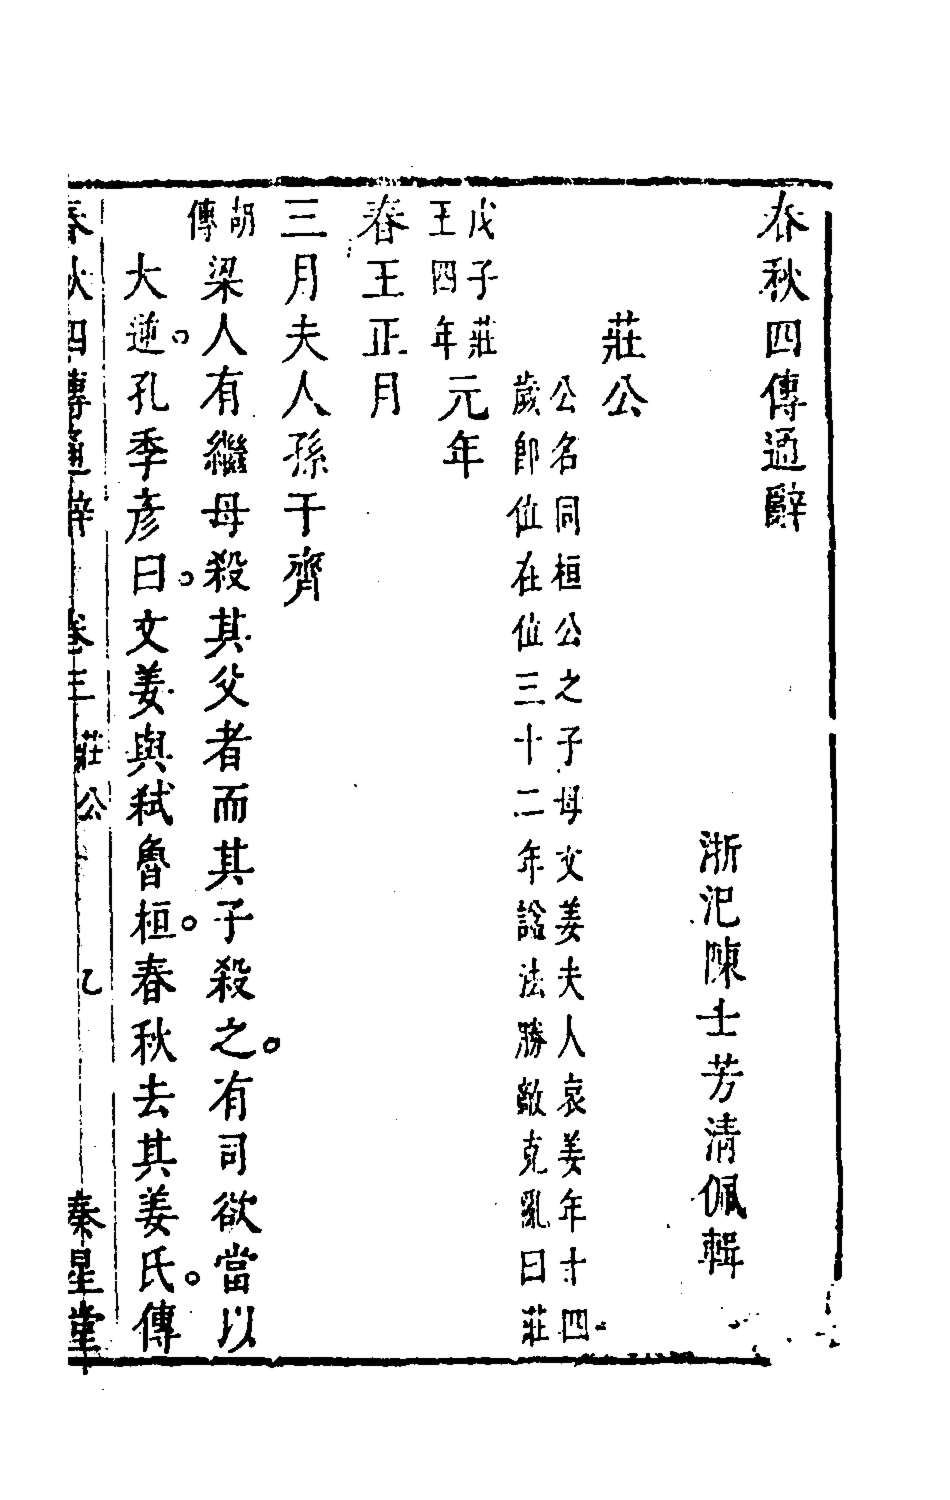 春秋四傳通辭
浙汜陳士芳清佩輯
莊公
公名同桓公之子母文姜夫人哀姜年十四
歲卽位在位三十二年諡法勝敵克亂曰莊
戊子莊
王四年
元年
春王正月
三月夫人孫于齊
胡
傳
梁人有繼母殺其父者而其子殺之。有司欲當以
大逆。孔季彥曰。文姜與弒魯桓。春秋去其姜氏。傳
春秋四傳通辭 卷三 莊公 乙 奏星堂